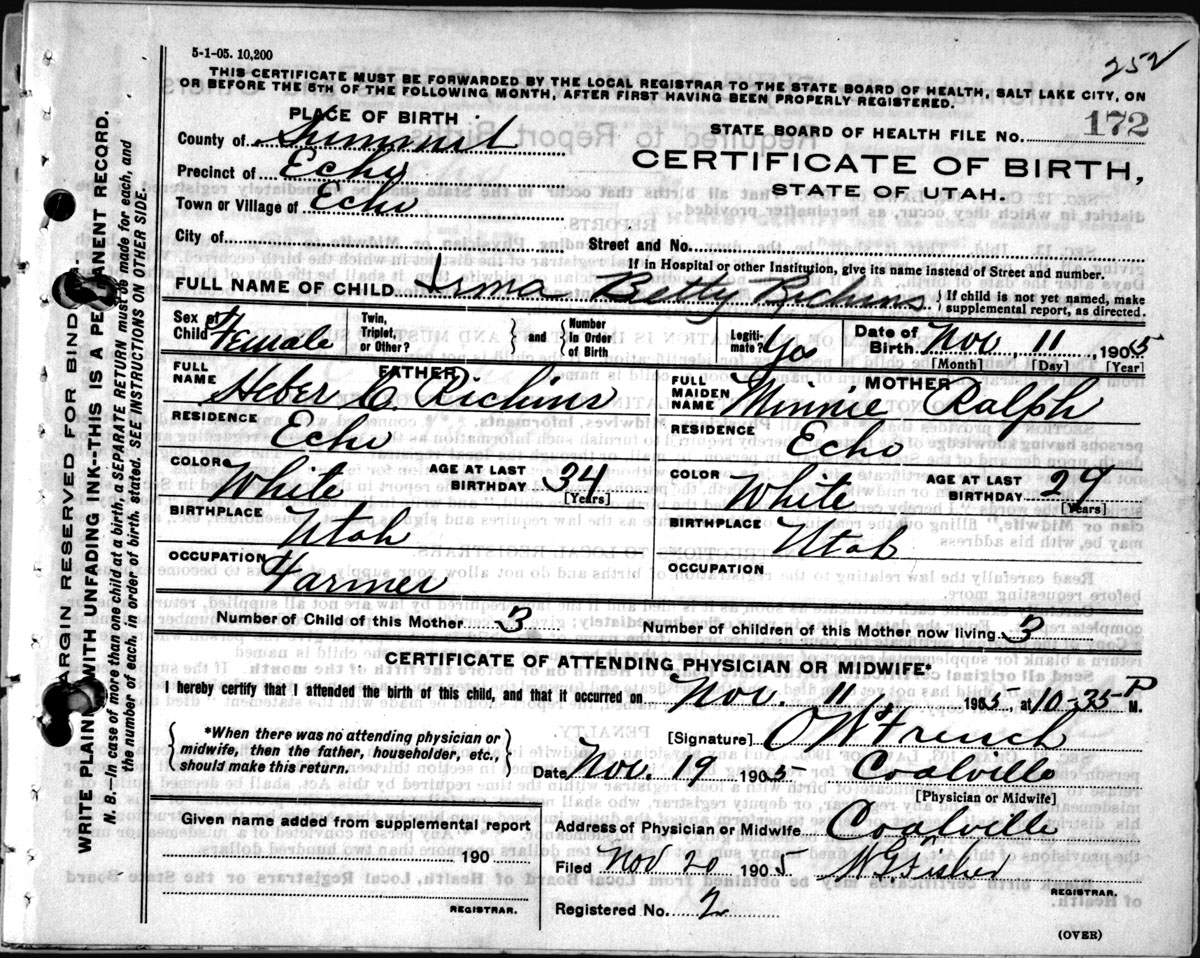 252
5-1-05. 10,200
THIS CERTIFICATE MUST BE FORWARDED BY THE LOCAL REGISTRAR TO THE STATE BOARD OF HEALTH, SALT LAKE CITY, ON
OR BEFORE THE 5TH OF THE FOLLOWING MONTH, AFTER FIRST HAVING BEEN PROPERLY REGISTERED.
PLACE OF BIRTH
STATE BOARD OF HEALTH FILE NO. 172
County of Summit
CERTIFICATE OF BIRTH,
Precinct of Echo
STATE OF UTAH.
Town or Village of Echo
City of Street and No.
If in Hospital or other Institution, give its name instead of Street and number.
FULL NAME OF CHILD Irma Betty Richins } If child is not yet named, make supplemental report, as directed.
Sex of Child Female Twin, Triplet, or Other? } and { Number in Order of Birth Legiti-mate? Date of Birth Nov 11, 1905
[Month] [Day] [Year]
FATHER MOTHER
FULL NAME Heber C. Richins FULL MAIDEN NAME Minnie Ralph
RESIDENCE Echo RESIDENCE Echo
COLOR White AGE AT LAST BIRTHDAY 34 [Years] COLOR White AGE AT LAST BIRTHDAY 29 [Years]
BIRTHPLACE Utah BIRTHPLACE Utah
OCCUPATION Farmer OCCUPATION
Number of Child of this Mother 3 Number of children of this Mother now living 3
CERTIFICATE OF ATTENDING PHYSICIAN OR MIDWIFE*
I hereby certify that I attended the birth of this child, and that it occurred on Nov. 11, 1905, at 10-35 P M.
{ *When there was no attending physician or midwife, then the father, householder, etc., should make this return. }
[Signature] O W French
Date Nov. 19 1905 Coalville
[Physician or Midwife]
Given name added from supplemental report
190
REGISTRAR.
Address of Physician or Midwife Coalville
Filed Nov 20 1905
REGISTRAR.
Registered No. 2
(OVER)
MARGIN RESERVED FOR BINDING
WRITE PLAINLY WITH UNFADING INK--THIS IS A PERMANENT RECORD.
N. B.—In case of more than one child at a birth, a SEPARATE RETURN must be made for each, and
the number of each, in order of birth, stated. SEE INSTRUCTIONS ON OTHER SIDE.